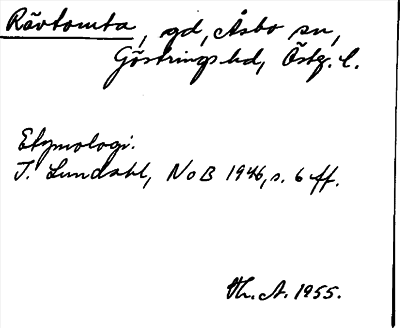 Rävtomta, gd, Åsbo sn,
Göstrings hd, Östg. l.
Etymologi.
I. Lundahl, NoB 1946, s. 6 ff.
Th. A. 1955.